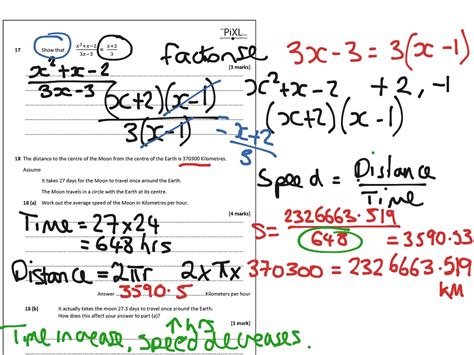 PiXL
17 Show that (x²+x−2)/(3x−3) = (x+2)/3
[3 marks]
factorise
3x-3 = 3(x-1)
x²+x-2
3x-3
(x+2)(x-1)
3(x-1)
- x+2
3
x²+x-2 +2, -1
(x+2)(x-1)
18 The distance to the centre of the Moon from the centre of the Earth is 370300 Kilometres.
Assume
It takes 27 days for the Moon to travel once around the Earth.
The Moon travels in a circle with the Earth at its centre.
18 (a) Work out the average speed of the Moon in Kilometres per hour.
[4 marks]
Speed = Distance
Time
Time = 27 x 24
= 648 hrs
S= 2326663.519
648
= 3590.53
Distance = 2πr 2xπx 370300 = 2326663.519
KM
Answer 3590.5 Kilometers per hour
18 (b) It actually takes the moon 27.3 days to travel once around the Earth.
How does this affect your answer to part (a)?
[3 marks]
↑ hrs
Time increase, speed decreases.